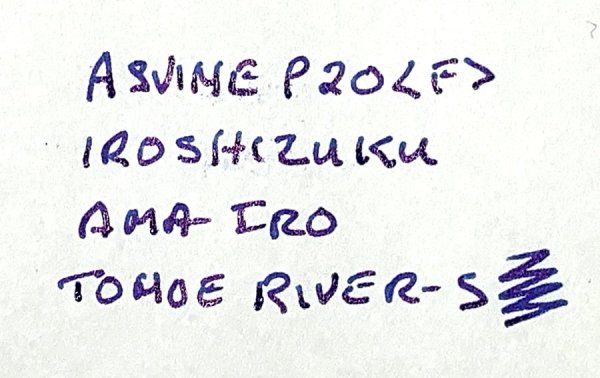 ASVINE P20<F>
IROSHIZUKU
AMA-IRO
TOMOE RIVER-S